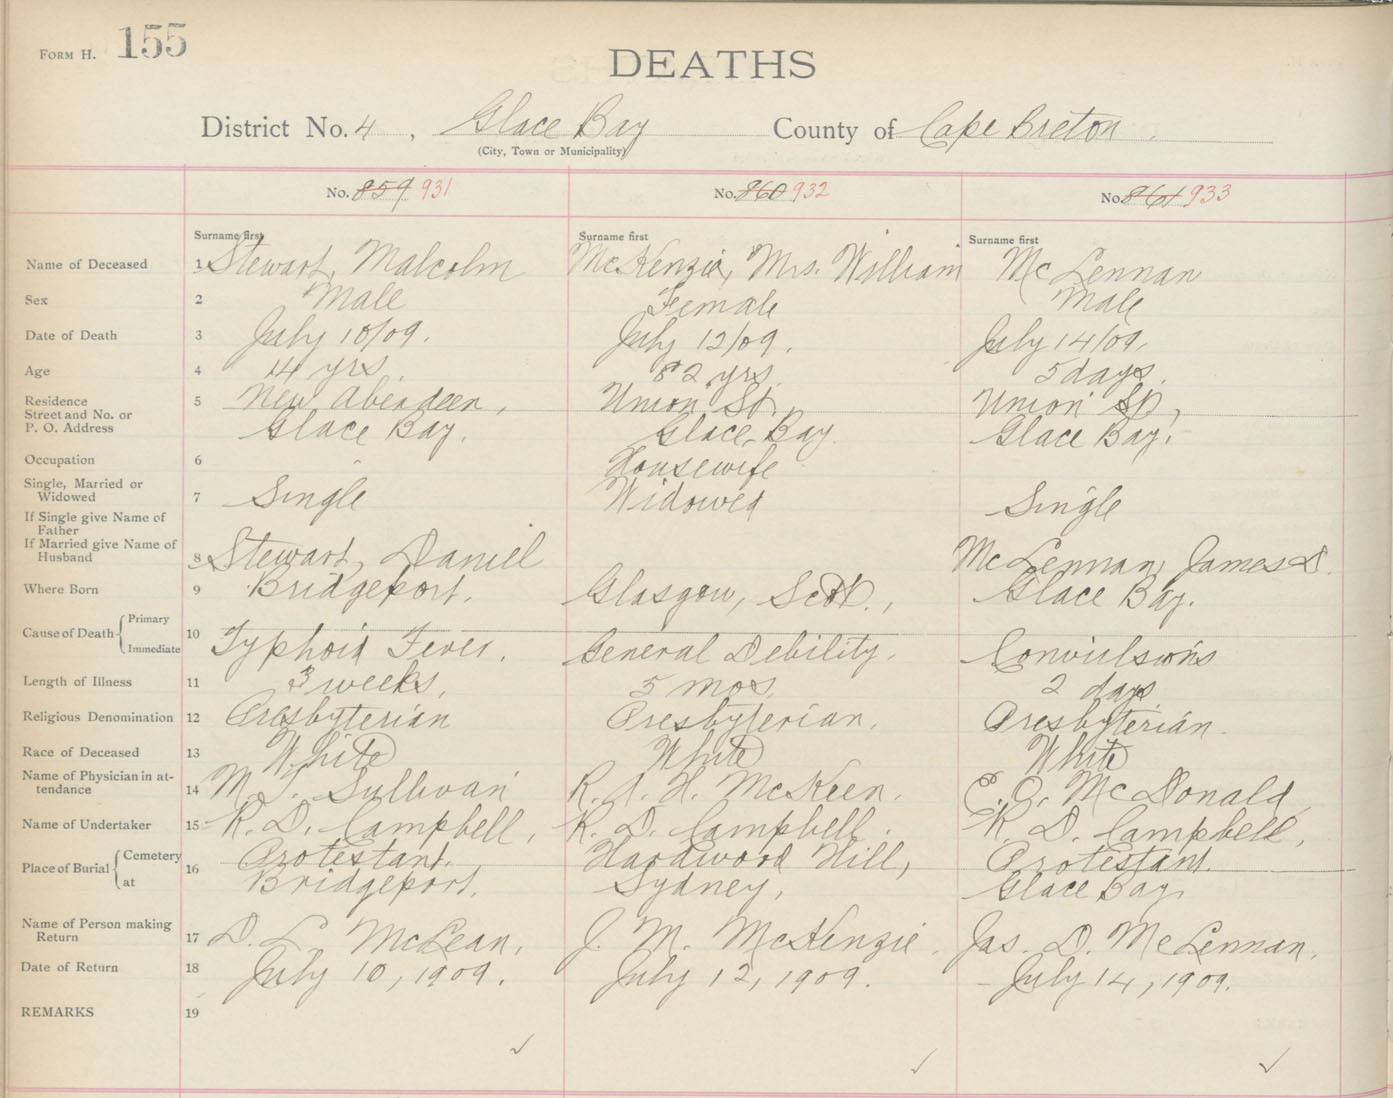 FORM H. 155
DEATHS
District No. 4, Glace Bay County of Cape Breton.
(City, Town or Municipality)
No. 859 931 No. 860 932 No. 861 933
Surname first Surname first Surname first
Name of Deceased 1 Stewart, Malcolm McKenzie, Mrs. William McLennan
Sex 2 Male Female Male
Date of Death 3 July 10/09. July 12/09. July 14/09.
Age 4 14 yrs. 82 yrs. 5 days.
Residence 5 New Aberdeen, Union St., Union St.,
Street and No. or
P. O. Address Glace Bay. Glace Bay. Glace Bay.
Occupation 6 Housewife
Single, Married or
Widowed 7 Single Widowed Single
If Single give Name of
Father
If Married give Name of
Husband 8 Stewart, Daniel McLennan, James D.
Where Born 9 Bridgeport. Glasgow, Scot., Glace Bay.
Cause of Death { Primary
Immediate 10 Typhoid Fever. General Debility. Convulsions
Length of Illness 11 3 weeks. 5 mos. 2 days
Religious Denomination 12 Presbyterian Presbyterian. Presbyterian.
Race of Deceased 13 White White White
Name of Physician in at-
tendance 14 M. T. Sullivan R. A. H. McKeen. E. O. McDonald
Name of Undertaker 15 R. D. Campbell, R. D. Campbell. R. D. Campbell,
Place of Burial { Cemetery 16 Protestant. Hardwood Hill, Protestant.
at Bridgeport. Sydney, Glace Bay.
Name of Person making
Return 17 D. L. McLean, J. M. McKenzie. Jas. D. McLennan.
Date of Return 18 July 10, 1909. July 12, 1909. July 14, 1909.
REMARKS 19